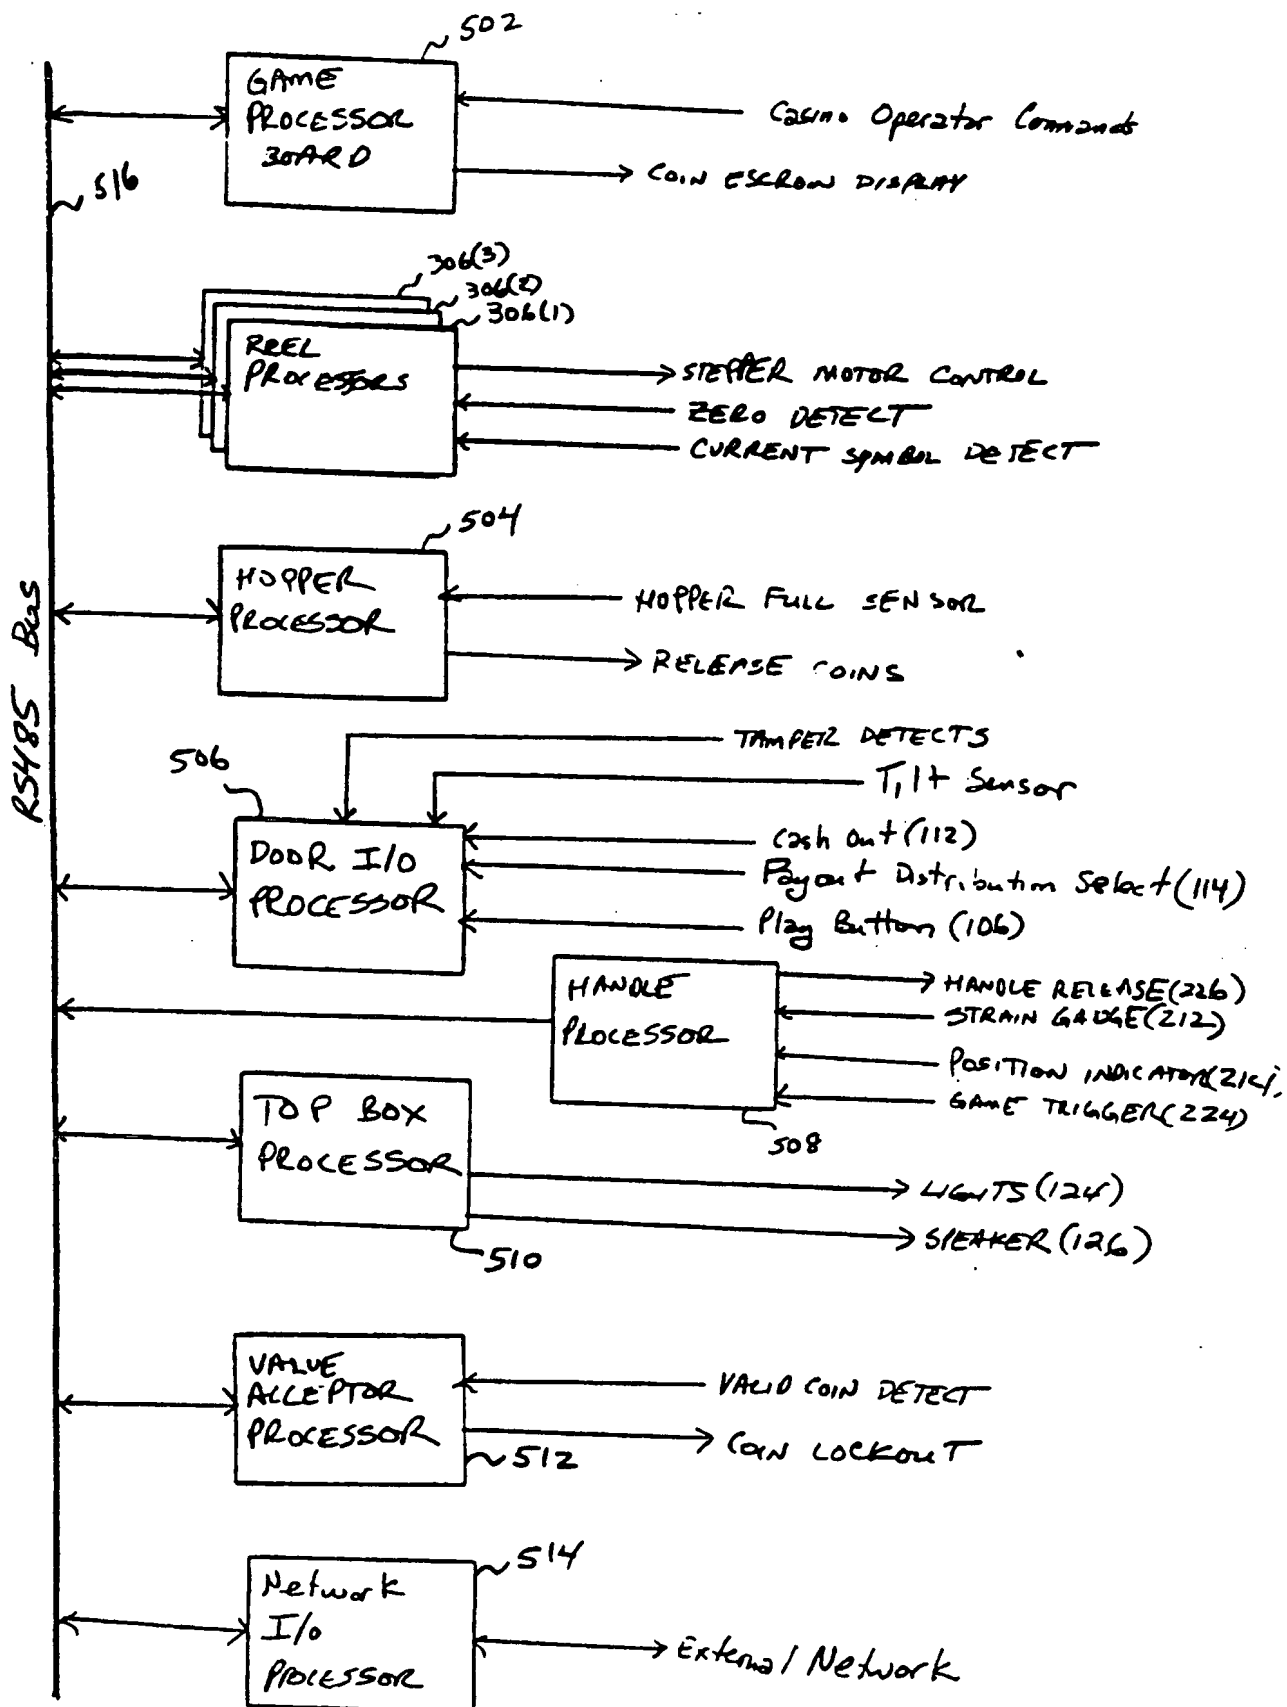 502
GAME
PROCESSOR
BOARD
Casino Operator Commands
COIN ESCROW DISPLAY
516
306(3)
306(2)
306(1)
REEL
PROCESSORS
STEPPER MOTOR CONTROL
ZERO DETECT
CURRENT SYMBOL DETECT
504
HOPPER
PROCESSOR
HOPPER FULL SENSOR
RELEASE COINS
RS485 Bus
TAMPER DETECTS
Tilt Sensor
506
DOOR I/O
PROCESSOR
Cash Out (112)
Payout Distribution Select (114)
Play Button (106)
HANDLE
PROCESSOR
HANDLE RELEASE (226)
STRAIN GAUGE (212)
POSITION INDICATOR (214),
GAME TRIGGER (224)
508
TOP BOX
PROCESSOR
LIGHTS (124)
SPEAKER (126)
510
VALUE
ACCEPTOR
PROCESSOR
VALID COIN DETECT
COIN LOCKOUT
512
514
Network
I/O
PROCESSOR
External Network